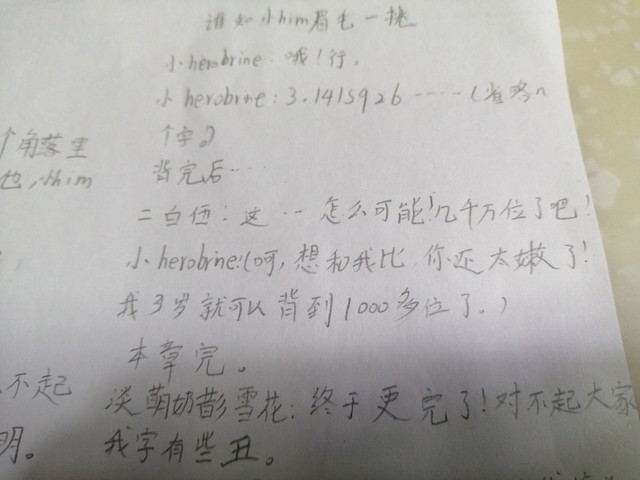 谁知小him眉毛一挑
小herobrine:哦!行。
小herobrine:3.1415926……(省略n
个字。)
背完后…
二白伍:这…怎么可能!几千万位了吧!
小herobrine:(呵,想和我比 你还太嫩了!
我3岁就可以背到1000多位了。)
本章完。
淡萌奶昔彡雪花:终于更完了!对不起大家
我字有些丑。
个角落里
也,小him
不起
明。